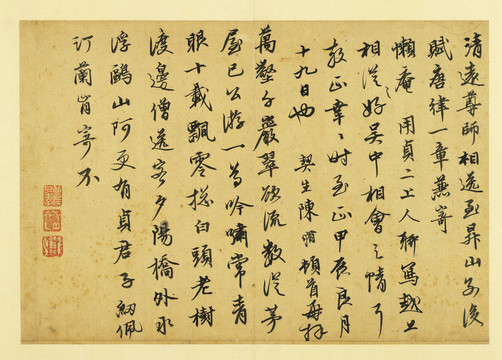 清遠尊師相送至昇山別後
賦唐律一章兼寄
懶庵用貞二上人聊寫越上
相從好吳中相會之情
教正幸〻時至正甲辰良月
十九日也 契生陳頓首再拜
萬壑千巖翠欲流數從茅
屋已公游一吟嘯常青
眼十載飄零總白頭老樹
渡邊僧送客夕陽橋外水
浮鷗山阿更有貞君子紉佩
汀蘭肯寄不